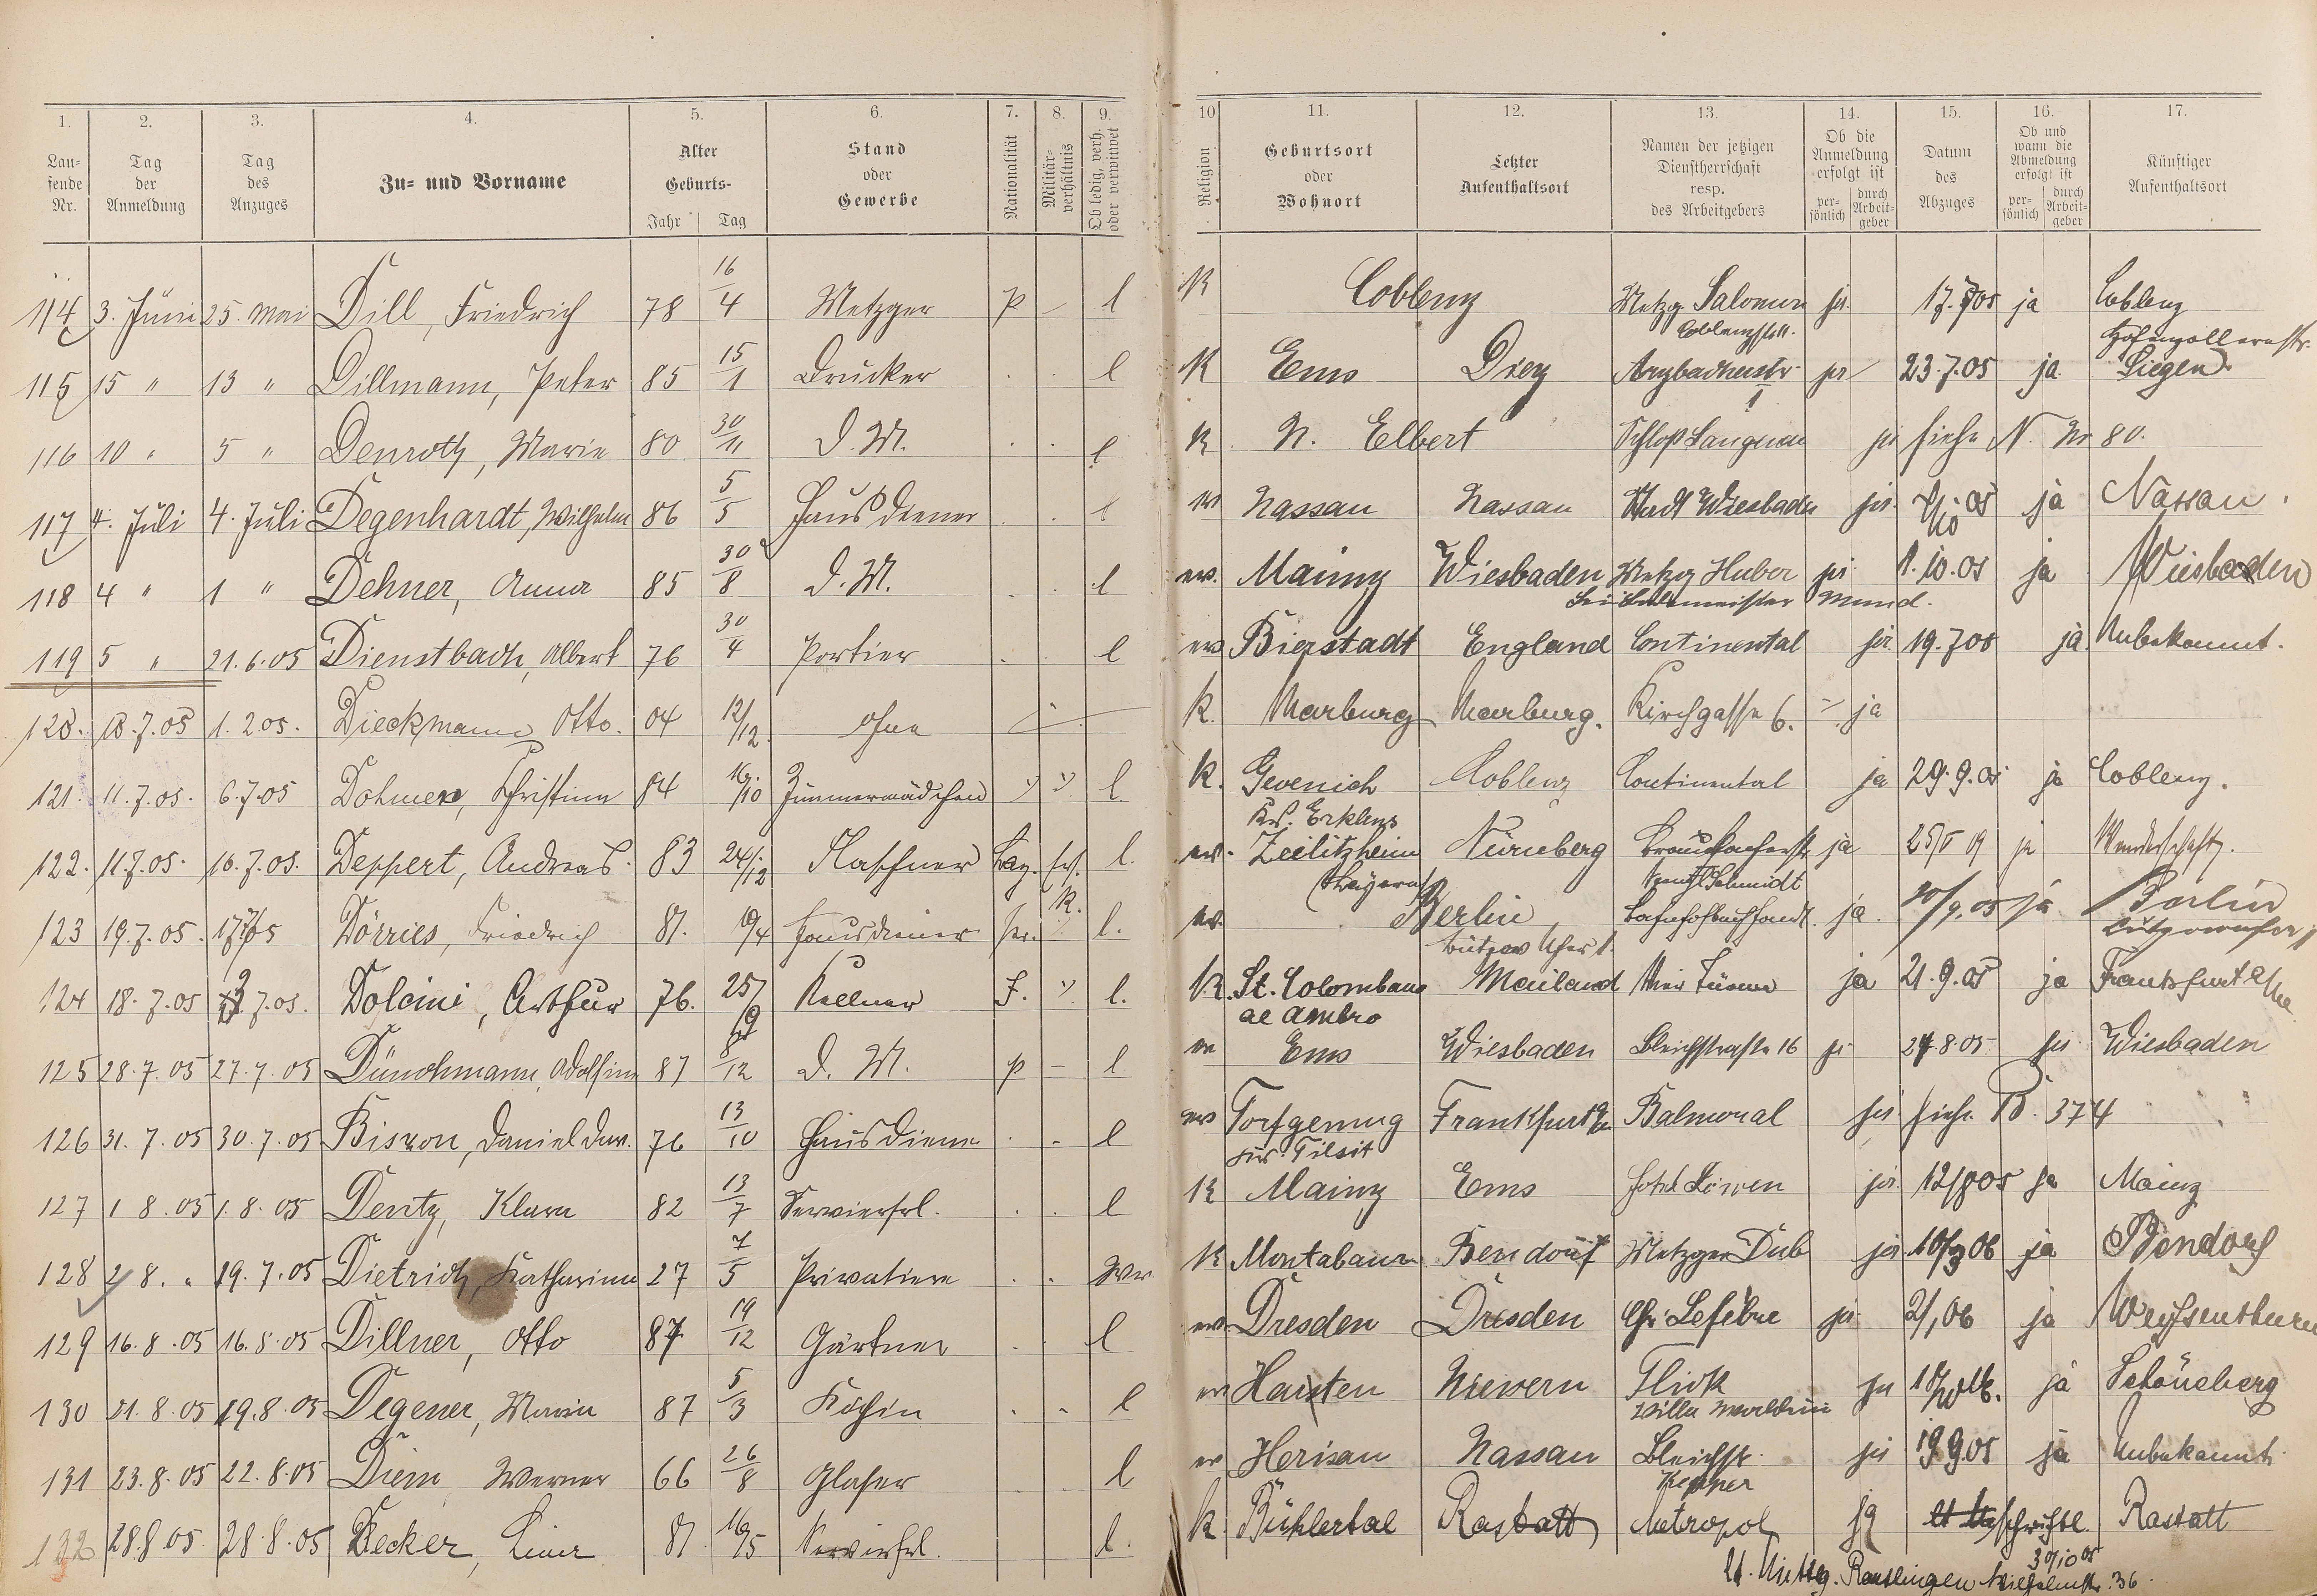 1. 2. 3. 4. 5. 6. 7. 8. 9. 10 11. 12. 13. 14. 15. 16. 17.
Laufende Nr. Tag der Anmeldung Tag des Anzuges Zu- und Vorname Alter Geburts- Jahr Tag Stand oder Gewerbe Nationalität Militärverhältnis Ob ledig, verh. oder verwitwet Religion Geburtsort oder Wohnort Letzter Aufenthaltsort Namen der jetzigen Dienstherrschaft resp. des Arbeitgebers Ob die Anmeldung erfolgt ist persönlich durch Arbeitgeber Datum des Abzuges Ob und wann die Abmeldung erfolgt ist persönlich durch Arbeitgeber Künftiger Aufenthaltsort
114 3. Juni 25. Mai Dill, Friedrich 78 16/4 Metzger p – l K Coblenz Metzg. Salomon ja 17.7.05 ja Coblenz
Coblenzstr. Hohenzollernstr.
115 15 " 13 " Dillmann, Peter 85 15/1 Drucker . . l K Ems Diez Arzbacherstr. ja 23.7.05 ja Siegen
1
116 10 " 5 " Denroth, Marie 80 30/11 D. M. . . l K N. Elbert Schloß Langnau ja siehe N. Nr 80.
117 4. Juli 4. Juli Degenhardt, Wilhelm 86 5/5 Hausdiener . . l ev Nassau Nassau Stadt Wiesbaden ja 05 ja Nassau.
118 4 " 1 " Dehner, Anna 85 30/8 D. M. . . l ev. Mainz Wiesbaden Metzg Huber ja 1.10.05 ja Wiesbaden
119 5 " 21.6.05 Dienstbach, Albert 76 30/4 Portier . . l ev Bierstadt England Continental ja 19.7.05 ja Unbekannt.
120. 18.7.05 1.2.05. Dieckmann Otto. 04 12/12. ohne K. Marburg Marburg. Kirchgasse 6. ja
121. 11.7.05. 6.7.05 Dohmen, Christina 84 16/10 Zimmermädchen " " l. K. Gevenich Coblenz Continental ja 29.9.05 ja Coblenz.
Krs. Erklenz
122. 11.7.05. 10.7.05. Deppert, Andreas. 83 24/12 Flaschner Bay. l. ev. Zeilitzheim Nürnberg ja ja Wanderschaft.
(Bayern) Schmidt
123 19.7.05. 17/7 05 Dörries, Friedrich 81. 19/4 Hausdiener pr. l. ev. Berlin Bahnhofbuchhandl. ja. 30/9.05 ja Berlin
Lützow Ufer 1. Lützowufer 1
124 18.7.05 7.05. Dolcini, Arthur 76. 25/9 Kellner I. " l. K. St. Colombano Mailand Vier Türme ja 21.9.05 ja Frankfurt a/M.
al Ambro
125 28.7.05 27.7.05 Dünchmann, Adolfine 87 12 D. M. p – l ev Ems Wiesbaden Bleichstraße 16 ja 24.8.05 ja Wiesbaden
126 31.7.05 30.7.05 Biswon, Daniel Dav. 76 13/10 Hausdiener . . l ev Frankfurt Balmoral ja siehe B. 374
Tilsit
127 1 8.05 1.8.05 Dentz, Klara 82 13/7 Servierfrl. . . l K Mainz Ems Hotel Löwen ja 12/8 05 ja Mainz
128 2 8. " 19.7.05 Dietrich, Katharina 27 7/5 Privatiere . . Wv K Montabaur Bendorf Metzger Dub ja 10/3 06 ja Bendorf
129 16.8.05 16.8.05 Dillner, Otto 87 19/12 Gärtner . . l ev Dresden Dresden Chr. Lefebre ja 2/1 06 ja
130 21.8.05 19.8.05 Degener, Maria 87 5/3 Köchin . . l ev Harsten Nievern Flick ja ja Schöneberg
Villa
131 23.8.05 22.8.05 Diem Werner 66 26/8 Glaser . . l ev Herisau Nassau Bleichstr. ja 19.9.05 ja Unbekannt
132 28.8.05 28.8.05 Decker, Lina 81 16/5 Servierfrl. l. K. Bühlertal Rastatt Metropol ja schriftl. Rastatt
30/10 05
Wilhelmstr. 36.